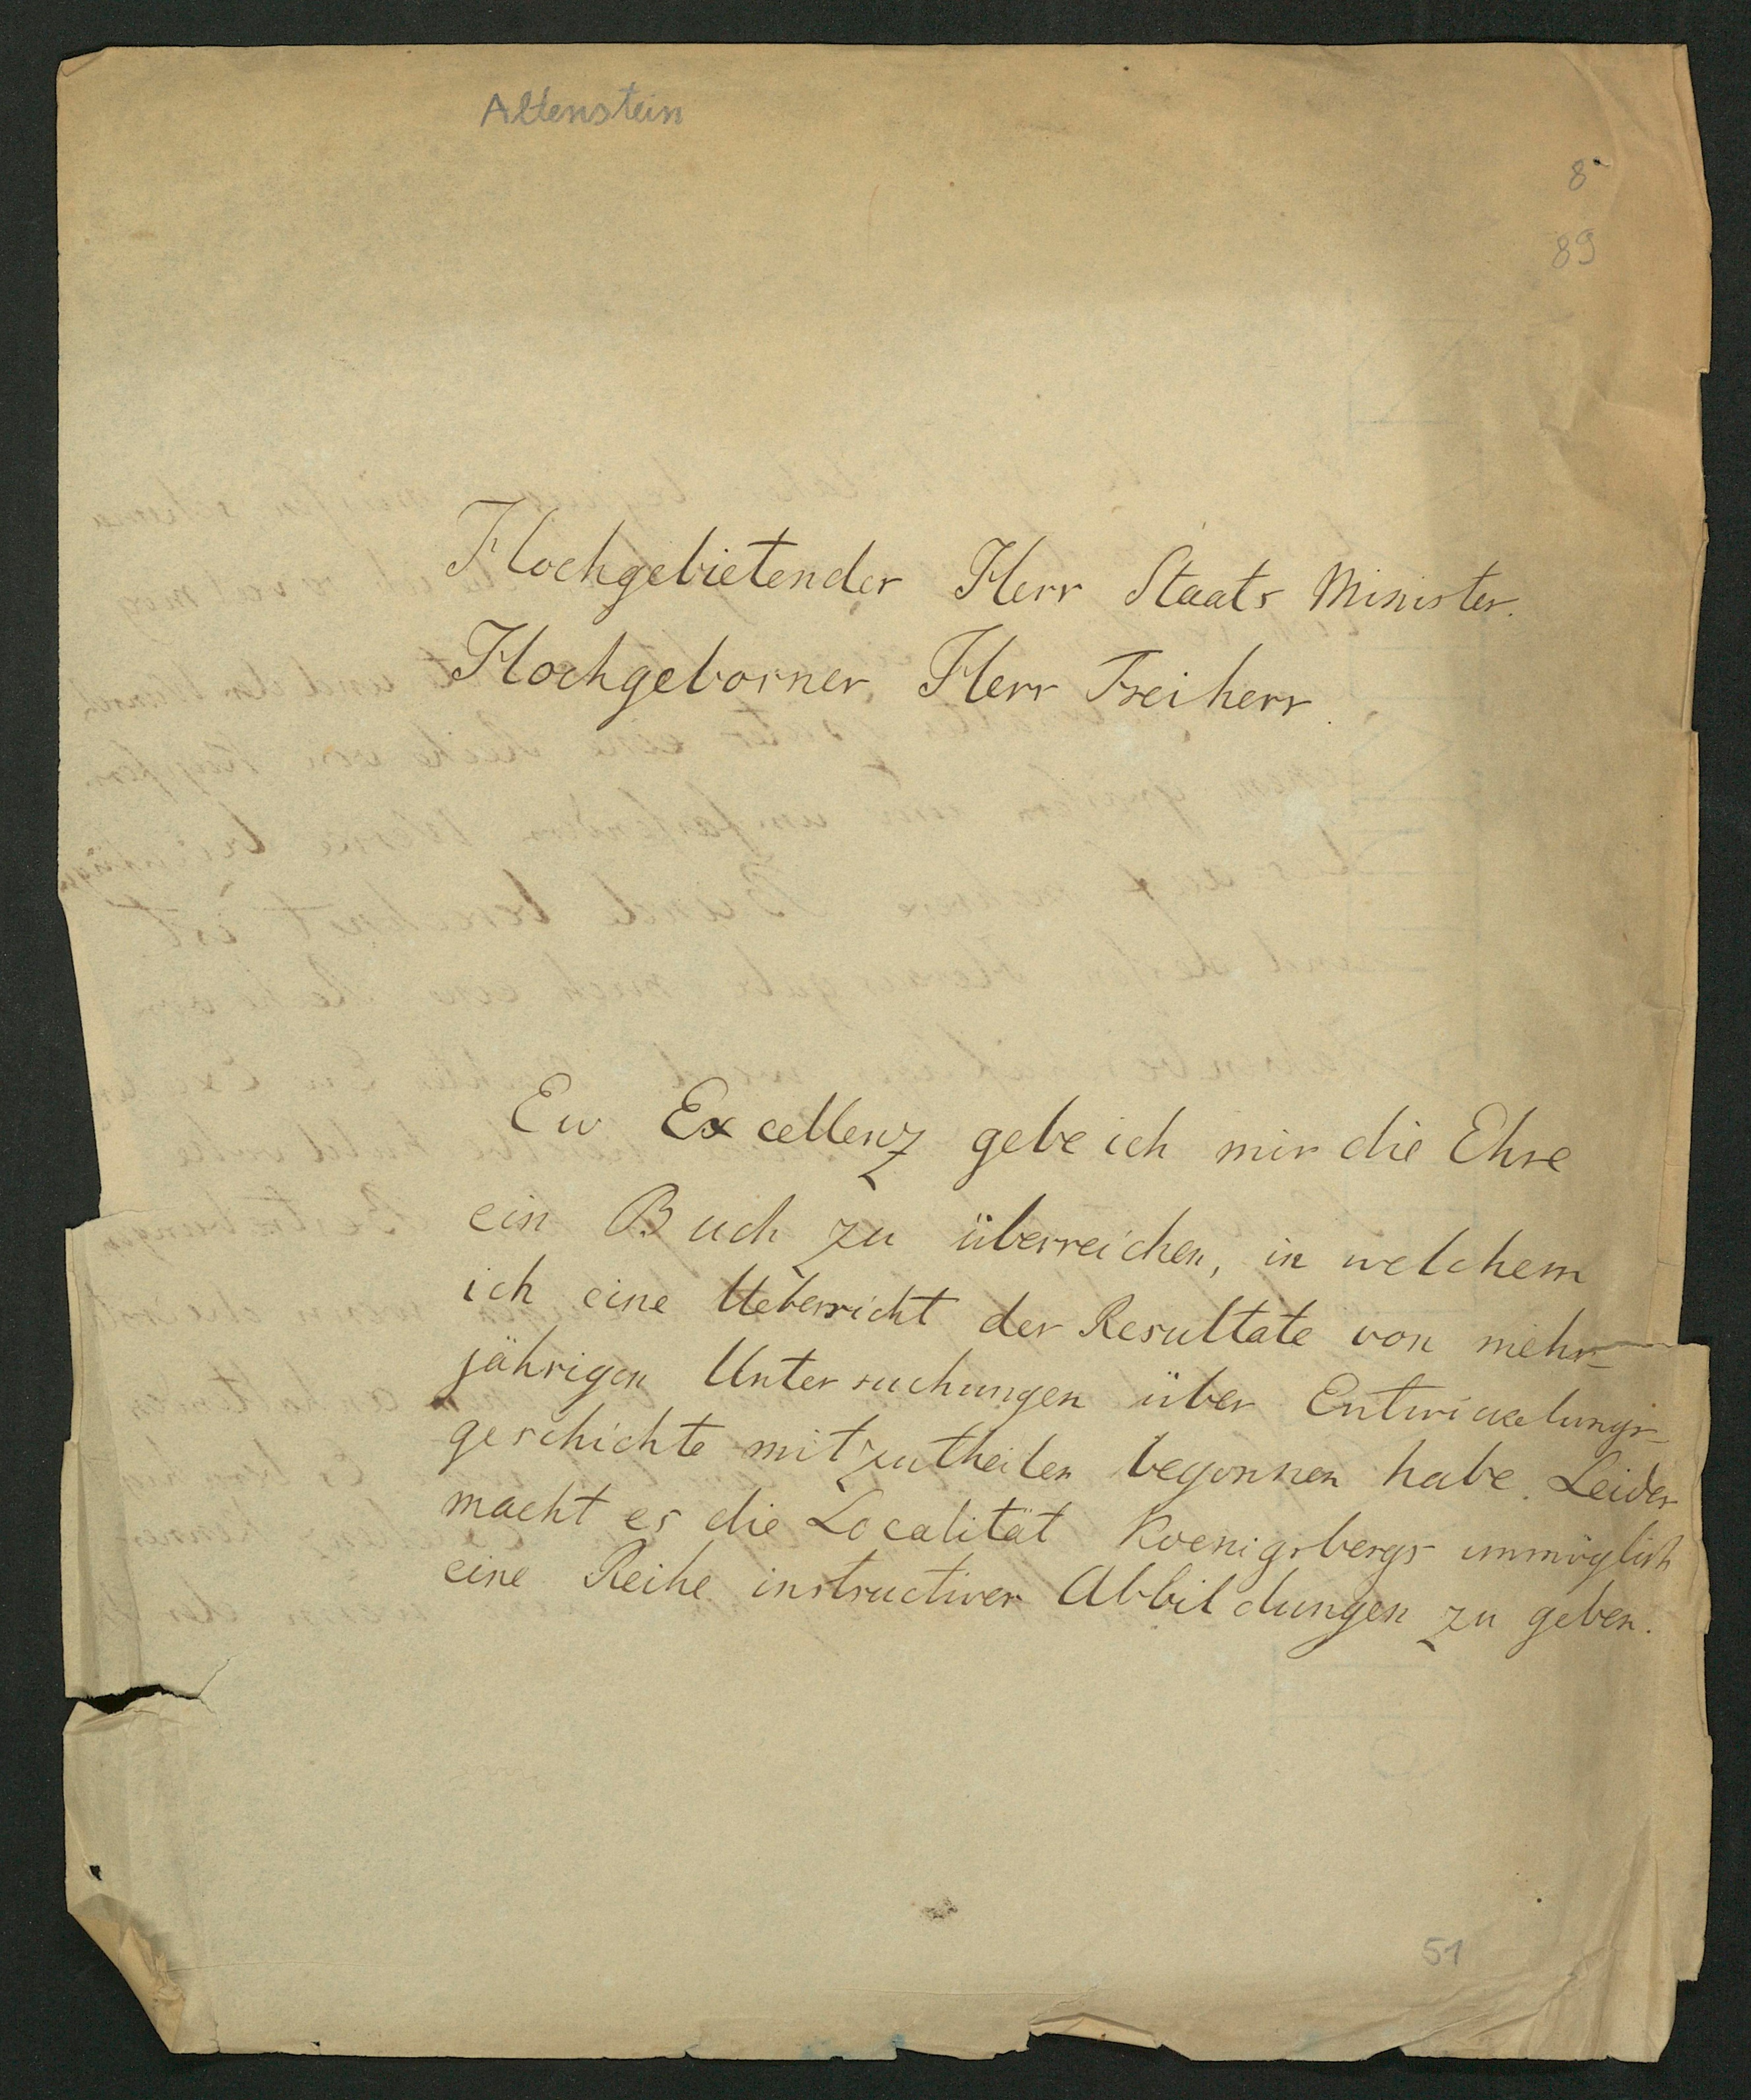 Altenstein
8
89
Hochgebietender Herr Staats Minister.
Hochgeborner Herr Freiherr.
Ew Excellenz gebe ich mir die Ehre
ein Buch zu überreichen, in welchem
ich eine Uebersicht der Resultate von mehr-
jährigen Untersuchungen über Entwickelungs-
geschichte mitzutheilen begonnen habe. Leider
macht es die Localität Koenigsbergs unmöglich
eine Reihe instructiver Abbildungen zu geben.
51